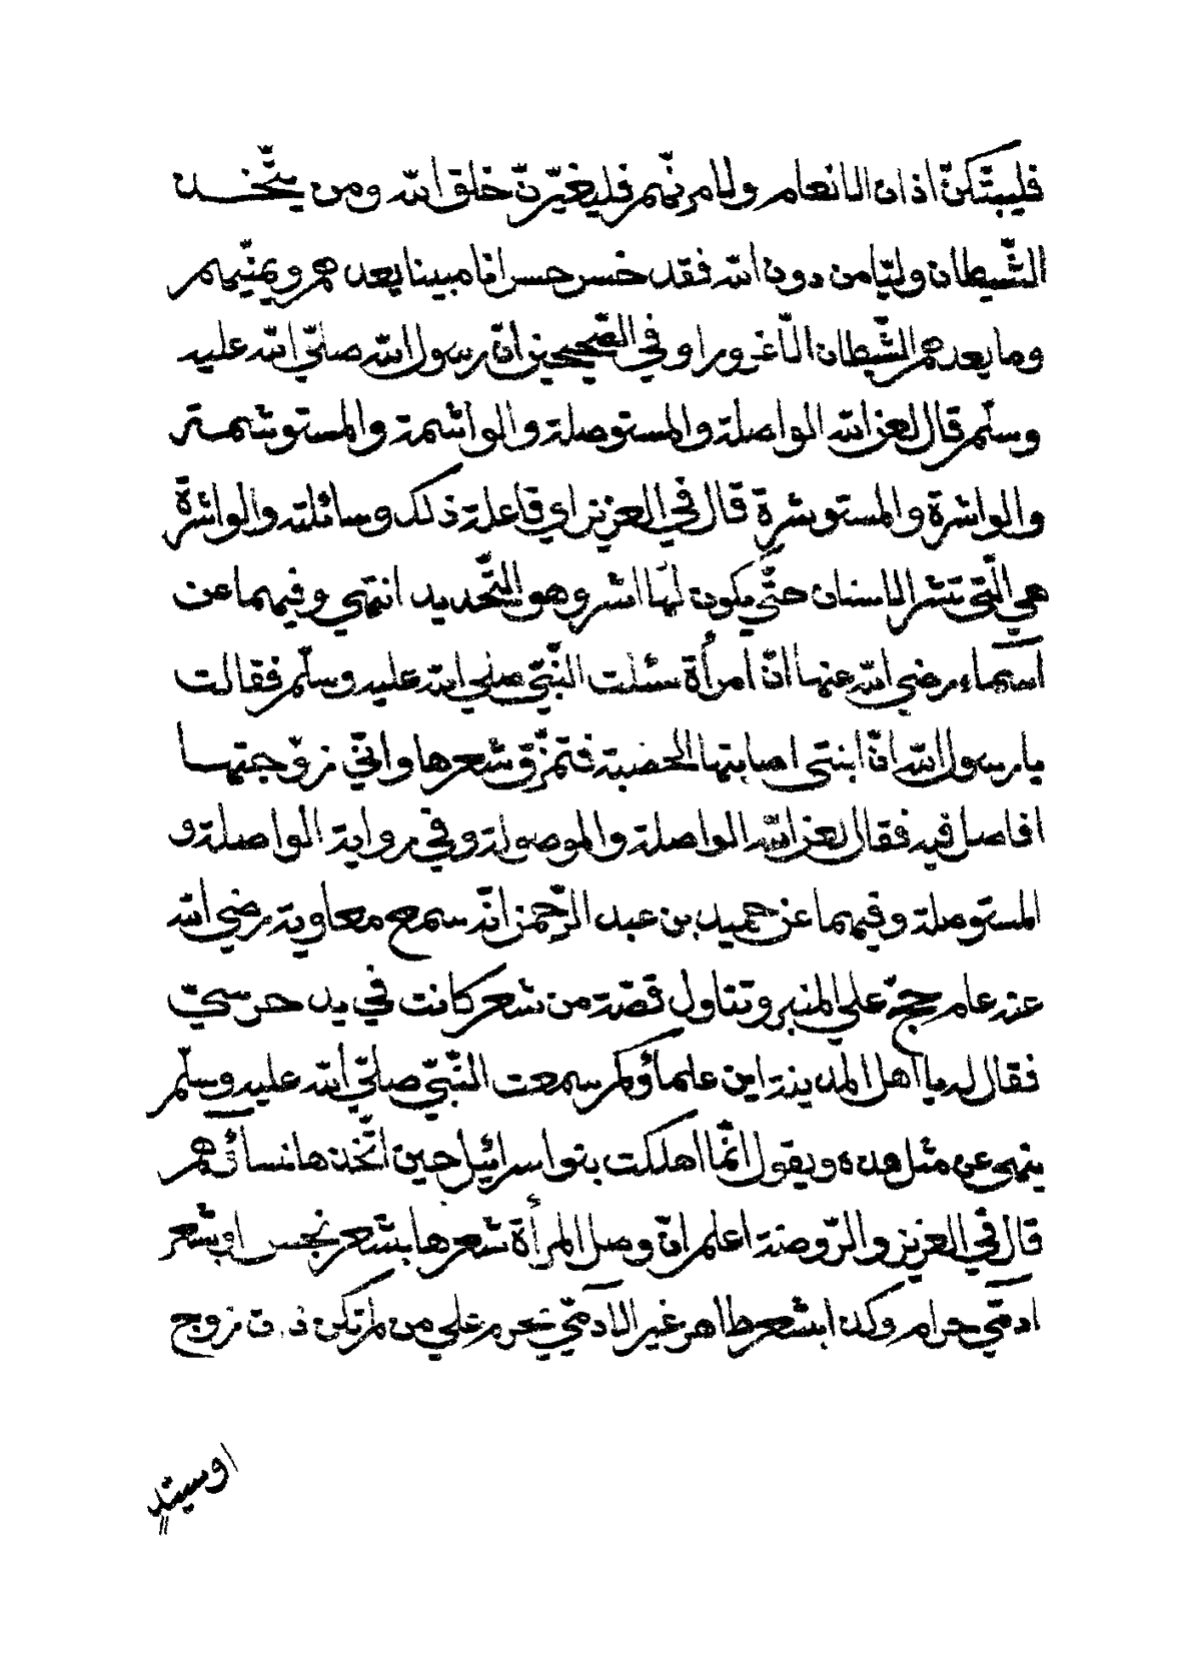 فليبتّكنّ اذان الانعام ولامرنّهم فليغيّرنّ خلق الله ومن يتّخـــذ
الشّيطان وليّا من دون الله فقد خسر خسرانا مبينا يعدهم ويمنّيهم
وما يعدهم الشّيطان الّا غرورا وفي الصّحيحين انّ رسول الله صلّي الله عليه
وسلّم قال لعن الله الواصلة والمستوصلة والواشمة والمستوشمــة
والواشرة والمستوشرة قال في العزيز اي فاعلة ذلك وسائلته والواشرة
هي الّتي تشر الاسنان حتّي يكون لها اشر وهو التّحديد انتهي وفيهما عن
اسماء رضي الله عنها انّ امرأة سئلت النّبيّ صلي الله عليه وسلّم فقالت
يا رسول الله انّ ابنتي اصابتها الحصبة فتمزّق شعرها وانّي زوّجتهــا
افاصل فيه فقال لعن الله الواصلة والموصولة وفي رواية الواصلة و
المستوصلة وفيهما عن حميد بن عبد الرّحمن انّه سمع معاوية رضي الله
عنه عام حجّ علي المنبر وتناول قصّة من شعر كانت في يد حرسيّ
فقال له يا اهل المدينة اين علماؤكم سمعت النّبيّ صلّي الله عليه وسلّم
ينهي عن مثل هذه ويقول انّما اهلكت بنو اسرائيل حين اتّخذها نساؤهم
قال في العزيز والرّوضة اعلم انّ وصل المرأة شعرها بشعر نجس او بشعر
ادمّي حرام وكذا بشعر طاهر غير الادمّي يحرم علي من لم تكن ذات زوج
او سيّد